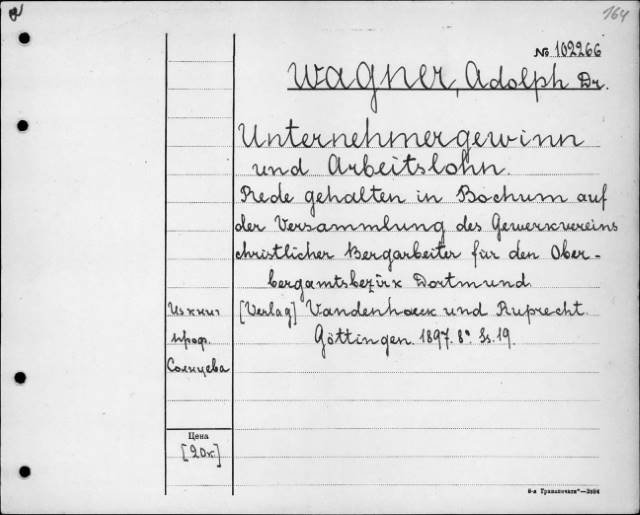 164
№ 102266
Wagner, Adolph Dr.
Unternehmergewinn
und Arbeitslohn.
Rede gehalten in Bochum auf
der Versammlung des Gewerkvereins
christlicher Bergarbeiter für den Ober-
bergamtsbezirk Dortmund.
[Verlag] Vandenhoeck und Ruprecht.
Göttingen. 1897. 8° Ss. 19.
Из книг
проф.
Солнцева
Цена
[20к]